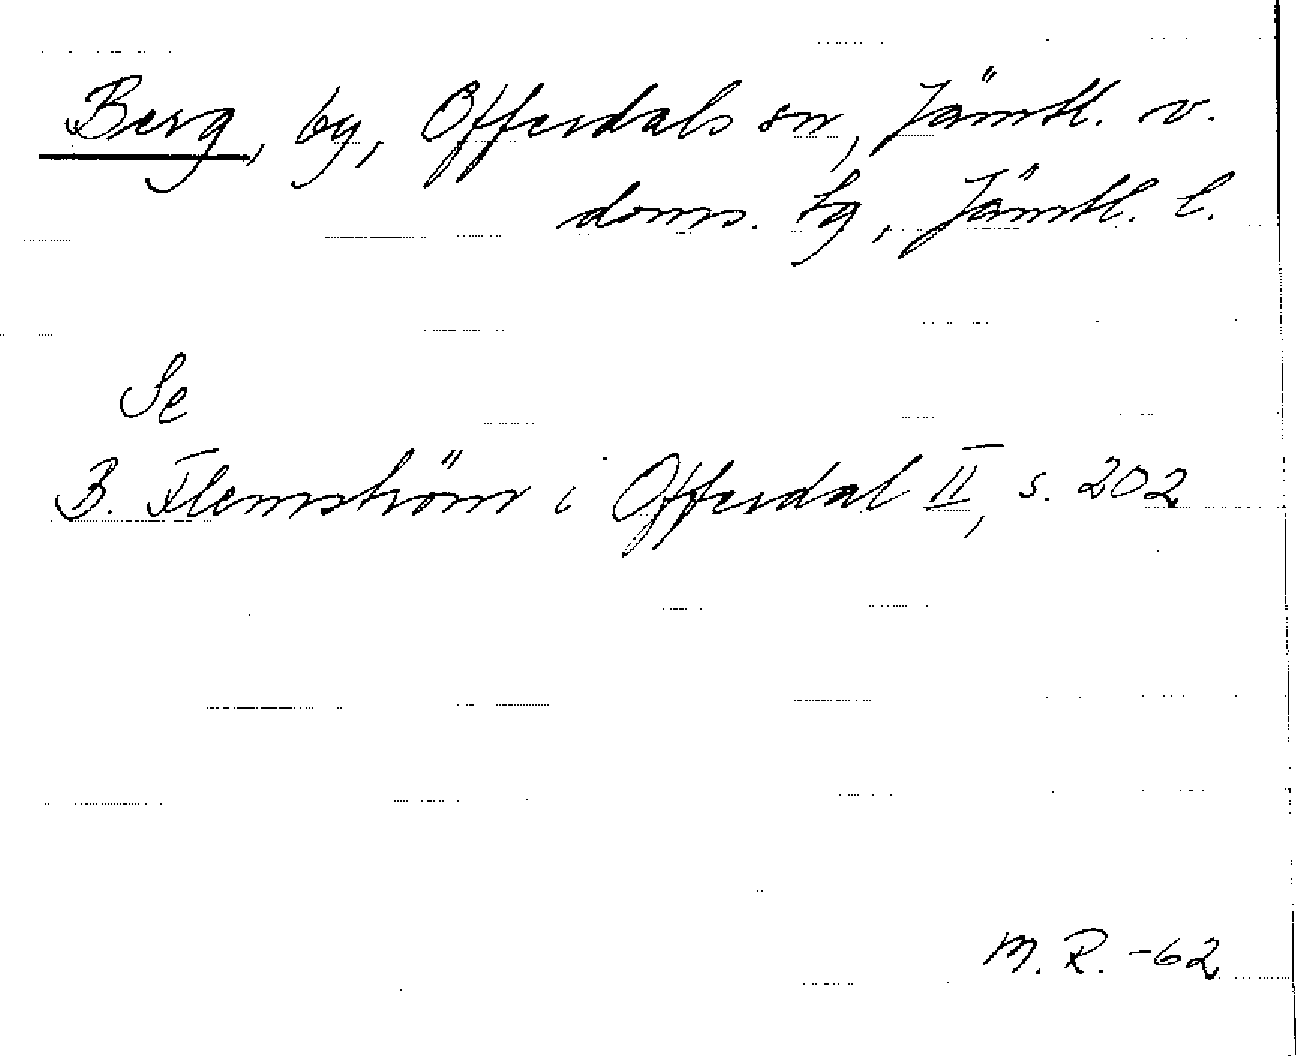 Berg, by, Offerdals sn, Jämtl. v.
doms. tg, Jämtl. l.
Se
B. Flemström i Offerdal II, s. 202
M. R. -62